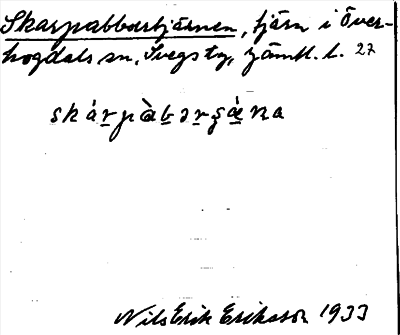 Skarpabborrtjärnen, tjärn i Över-
hogdals sn, Svegs tg, Jämtl. l. 27
Nils Erik Eriksson 1933